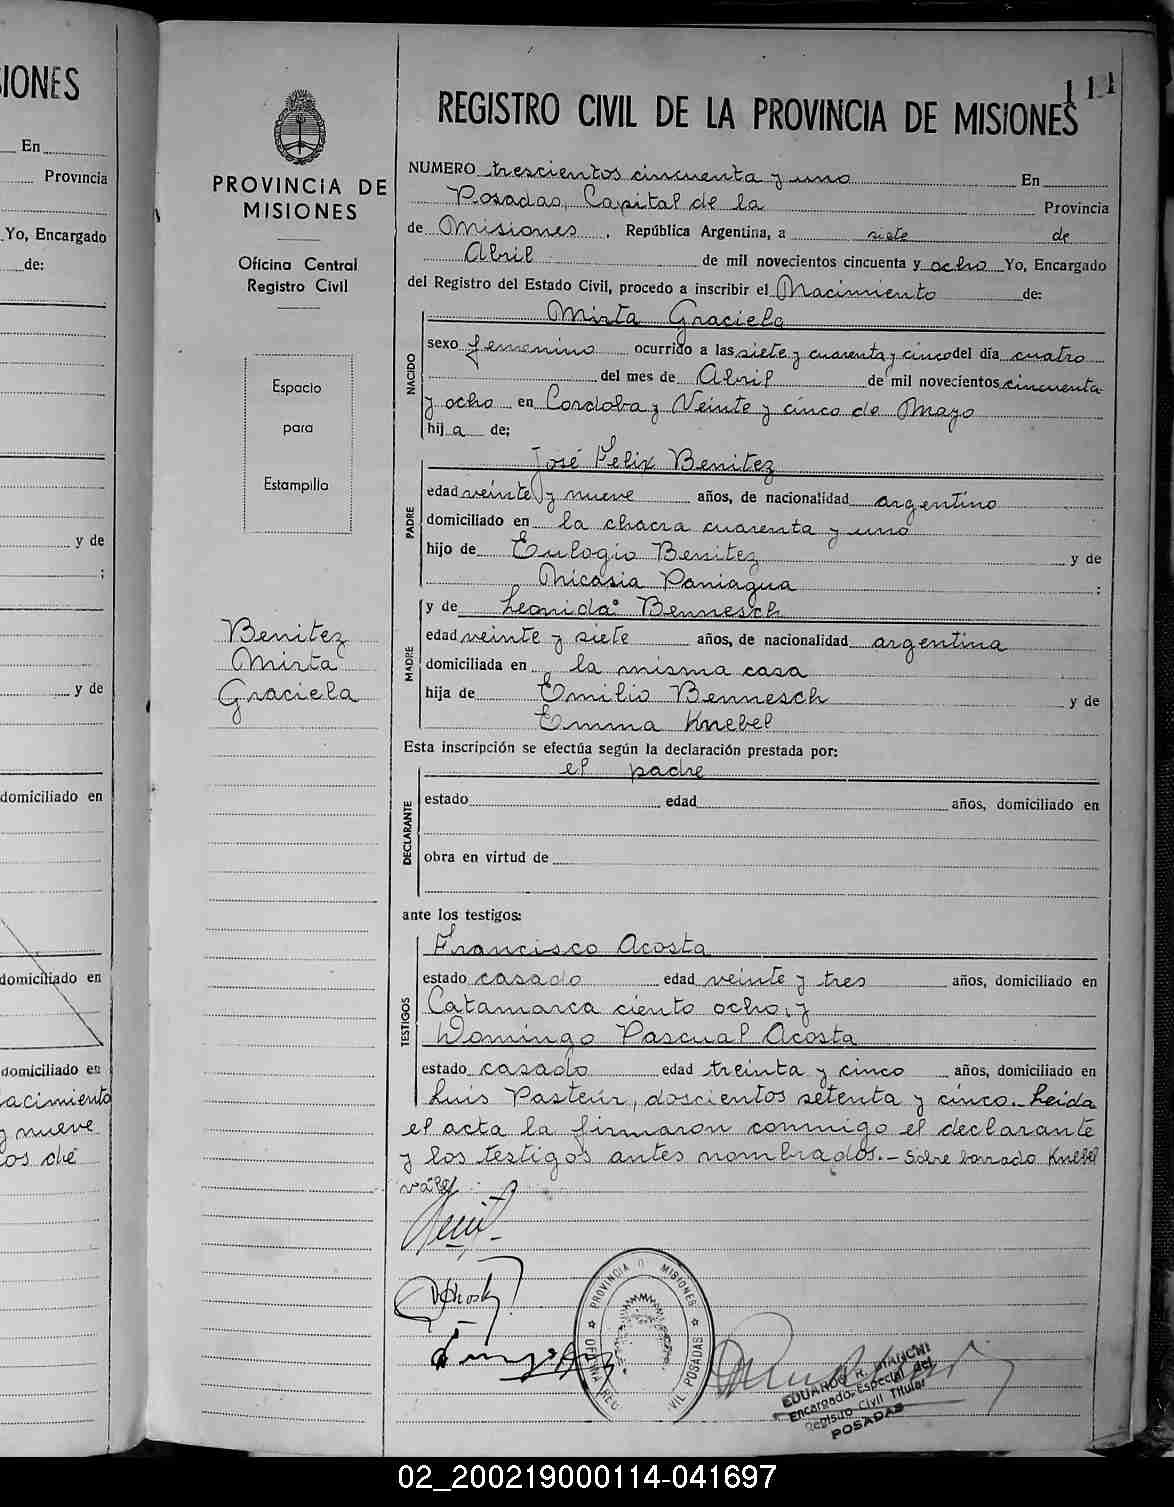 IONES
En
Provincia
Yo, Encargado
de:
y de
;
y de
domiciliado en
domiciliado en
domiciliado en
acimiento
y nueve
os de
PROVINCIA DE
MISIONES
Oficina Central
Registro Civil
Espacio
para
Estampilla
Benitez
Mirta
Graciela
111
REGISTRO CIVIL DE LA PROVINCIA DE MISIONES
NUMERO trescientos cincuenta y uno En
Posadas, Capital de la Provincia
de Misiones, República Argentina, a siete de
Abril de mil novecientos cincuenta y ocho Yo, Encargado
del Registro del Estado Civil, procedo a inscribir el Nacimiento de:
Mirta Graciela
NACIDO
sexo femenino ocurrido a las siete y cuarenta y cinco del día cuatro
del mes de Abril de mil novecientos cincuenta
y ocho en Cordoba y Veinte y cinco de Mayo
hij a de;
José Felix Benitez
PADRE
edad veinte y nueve años, de nacionalidad argentino
domiciliado en la chacra cuarenta y uno
hijo de Eulogio Benitez y de
Nicasia Paniagua ;
MADRE
y de Leonida Bennesch
edad veinte y siete años, de nacionalidad argentina
domiciliada en la misma casa
hija de Emilio Bennesch y de
Emma Knebel
Esta inscripción se efectúa según la declaración prestada por:
el padre
DECLARANTE
estado edad años, domiciliado en
obra en virtud de
ante los testigos:
TESTIGOS
Francisco Acosta
estado casado edad veinte y tres años, domiciliado en
Catamarca ciento ocho, y
Domingo Pascual Acosta
estado casado edad treinta y cinco años, domiciliado en
Luis Pasteur, doscientos setenta y cinco.- Leida
el acta la firmaron conmigo el declarante
y los testigos antes nombrados.- Sobre borrado Knebel
vale
PROVINCIA D MISIONES
OFICINA REG VIL POSADAS
EDUARDO R. BIANCHI
Encargado Especial del
Registro Civil Titular
POSADAS
02_200219000114-041697